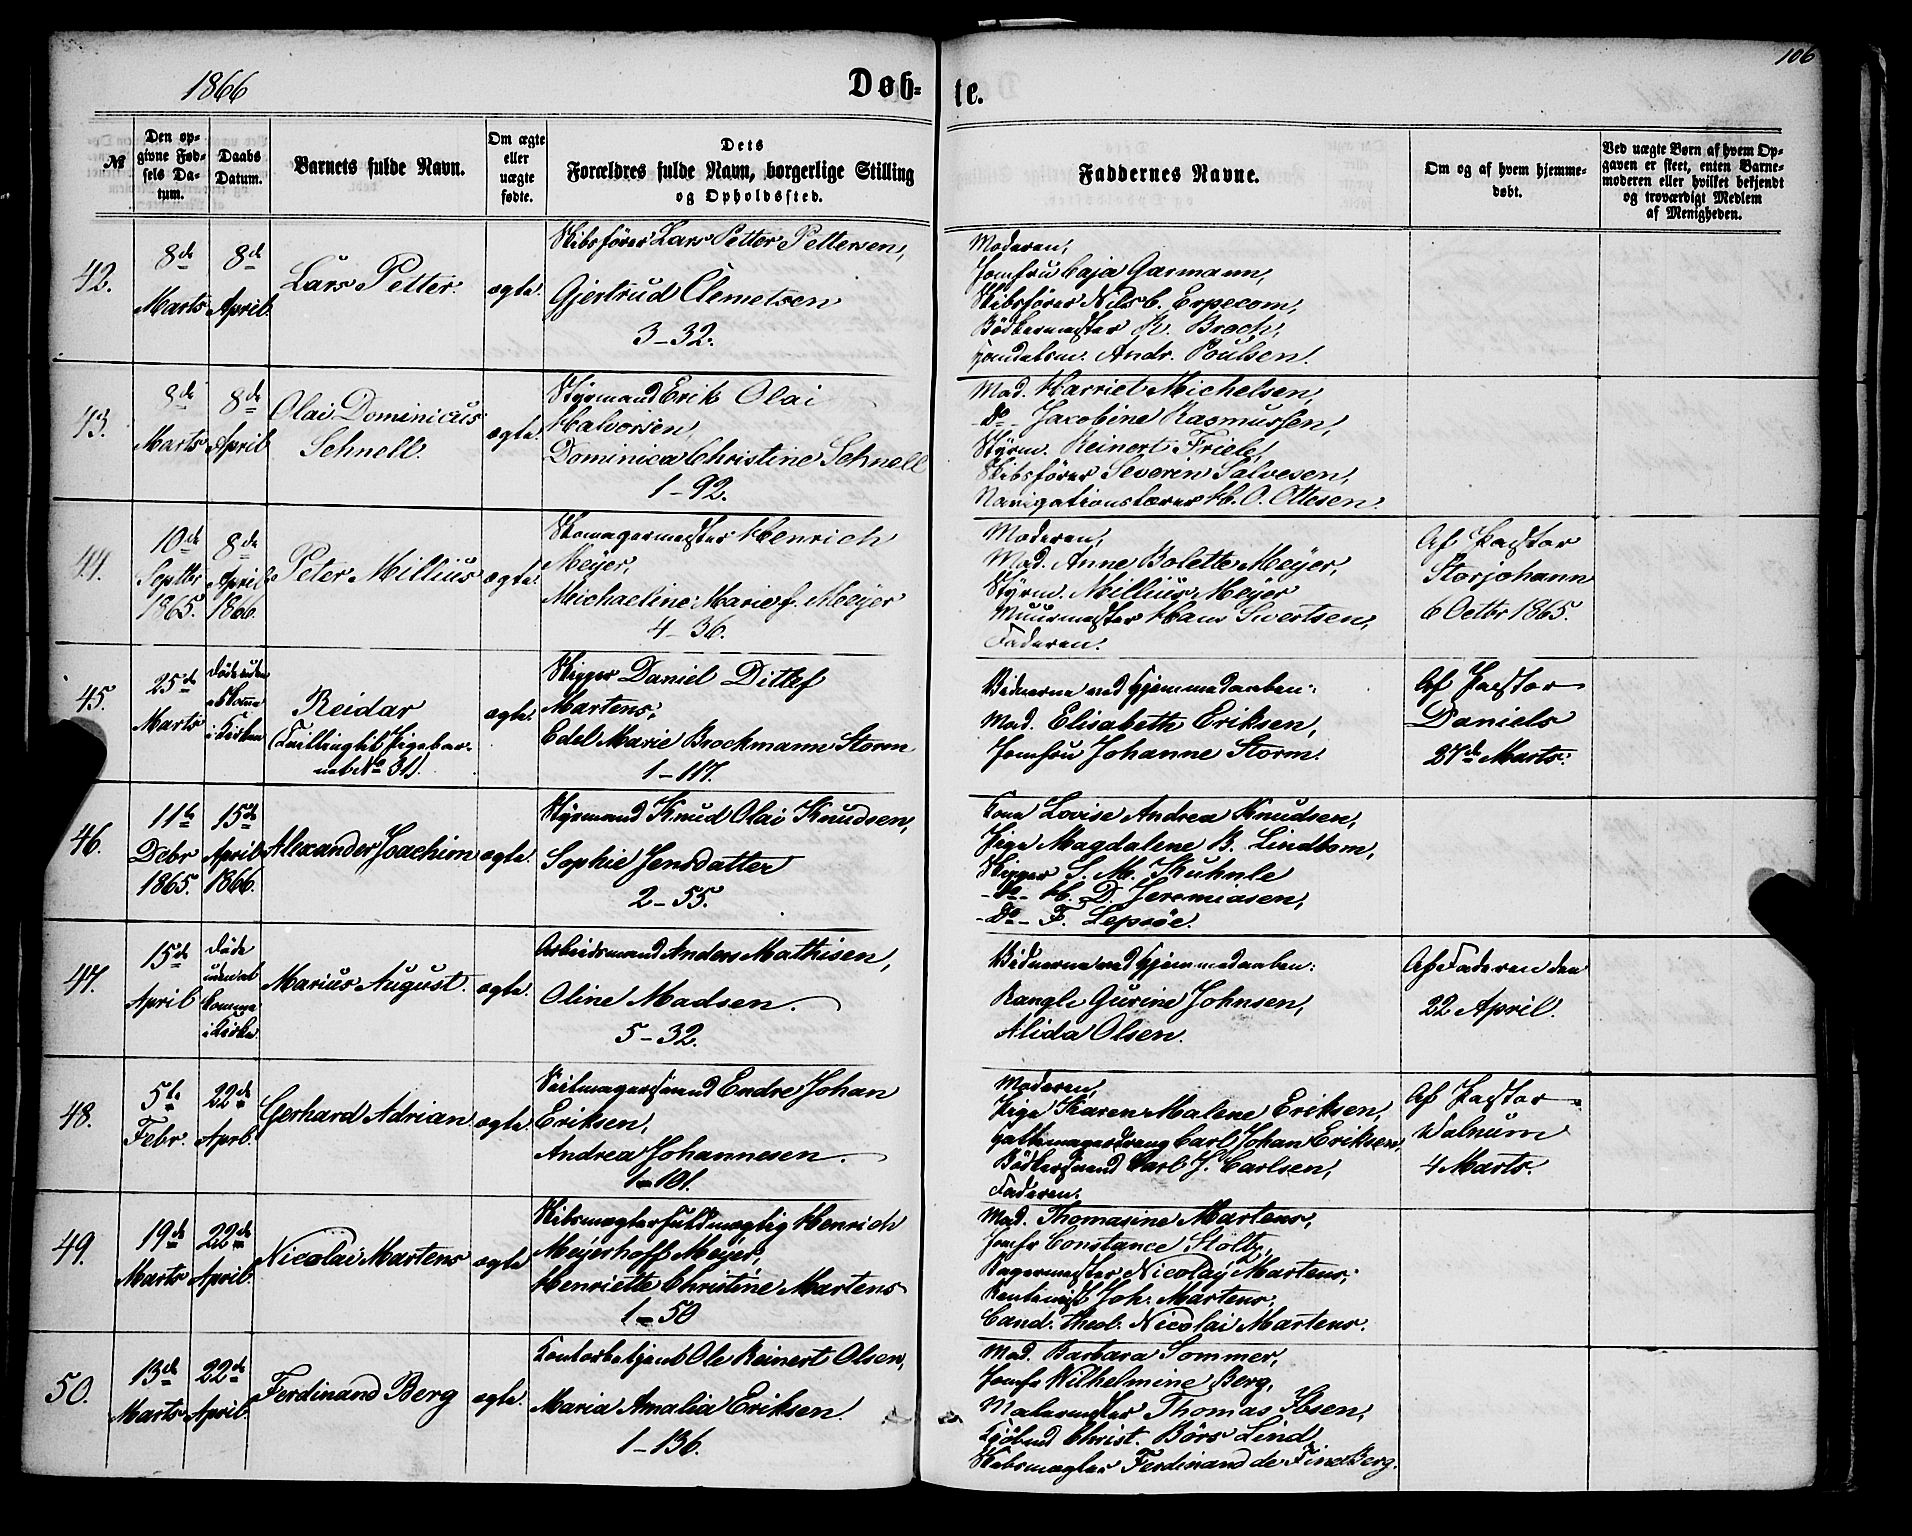 106
1866
Døb-te.
№
Den opgivne Fødsels Datum.
Daabs Datum.
Barnets fulde Navn.
Om ægte eller uægte fødte.
Dets Forældres fulde Navn, borgerlige Stilling og Opholdssted.
Faddernes Navne.
Om og af hvem hjemmedøbt.
Ved uægte Børn af hvem Opgaven er skeet, enten Barnemoderen eller hvilket bekjendt og troværdigt Medlem af Menigheden.
42.
8de Marts
8de April
Lars Petter.
ægte.
Skibsfører Lars Petter Pettersen,
Gjertrud Clemetsen
3-32.
Moderen,
Jomfru Caja Garmann,
Skibsfører Nils C. Erpecom,
Bødkermester R. Broch,
Handelsm. Andr. Poulsen.
43.
8de Marts
8de April
Olai Dominicus
Schnell.
ægte.
Styrmand Erik Olai
Halvorsen,
Dominica Christine Schnell
1-92.
Mad. Harriet Michelsen,
-Do- Jacobine Rasmussen,
Styrm. Reinert Friele,
Skibsfører Severin Salvesen,
Navigationslærer H. O. Ottesen.
44.
10de Septbr 1865.
8de April 1866.
Peter Millius
ægte.
Skomagermester Henrich
Meyer,
Michaeline Marie f. Meyer
4-36.
Moderen,
Mad. Anne Bolette Meyer,
Styrm. Millius Meyer
Muurmester Hans Swertsen,
Faderen.
Af Pastor
Storjohann
6 Octbr 1865.
45.
25de Marts
Døde uden at komme i Kirken
Reidar
(Tvilling til Pigebarnet No 31)
ægte.
Skipper Daniel Ditlef
Martens,
Edel Marie Brockmann Storm
1-117.
Vidnerne ved Hjemmedaaben:
Mad. Elisabeth Eriksen,
Jomfru Johanne Storm.
Af Pastor
Daniels
27de Marts.
46.
11te Debr 1865.
15de April 1866.
Alexander Joachim
ægte.
Styrmand Knud Olai Knudsen,
Sophie Jensdatter
2-55.
Kone Lovise Andrea Knudsen,
Pige Magdalene B. Lindbom,
Skipper S. M. Kuhnle
-Do- H. D. Jeremiasen,
-Do- F. Lepsøe.
47.
15de April
Døde uden at komme i Kirke.
Marius August.
ægte.
Arbeidsmand Anders Mathisen,
Oline Madsen.
5-32.
Vidnerne ved Hjemmedaaben:
Rangle Gurine Johnsen,
Alida Olsen.
Af Faderen den
22 April.
48.
5te Febr.
22de Aprl.
Gerhard Adrian
ægte.
Seilmagersvend Endre Johan
Eriksen,
Andrea Johannesen.
1-101.
Moderen,
Pige Karen Malene Eriksen,
Hattemagerdreng Carl Johan Eriksen,
Bødkersvend Carl J. Carlsen,
Faderen.
Af Pastor
Walnum
4 Marts.
49.
19de Marts
22de April.
Nicolai Martens
ægte
Skibsmæglerfuldmægtig Henrich
Meyerhoff Meyer,
Henriette Christine Martens
1-50
Mad. Thomasine Martens,
Jomfr Constance Stoltz,
Bagermester Nicolay Martens,
Rentenist Joh. Martens,
Cand. theol. Nicolai Martens.
50.
13de Marts
22de April.
Ferdinand Berg
ægte.
Toldbetjent Ole Reinert Olsen,
Maria Amalia Eriksen.
1-136.
Mad. Barbara Sommer,
Jomfr Wilhelmine Berg,
Malermester Thomas Ibsen,
Christ. Børs Lind
Skibsmægler Ferdinand de Fine Berg.